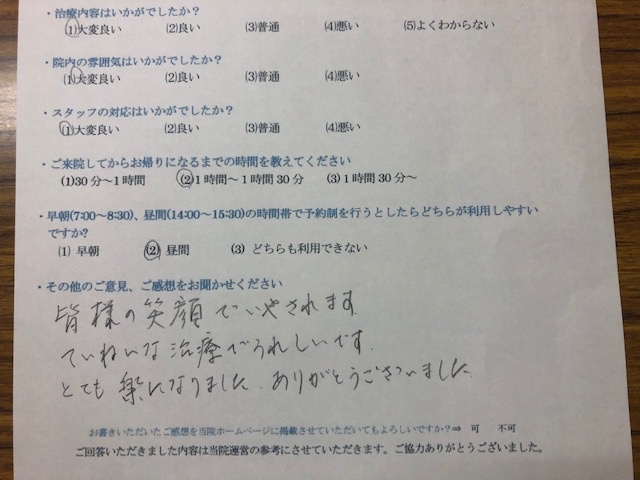 ・治療内容はいかがでしたか？
(1)大変良い (2)良い (3)普通 (4)悪い (5)よくわからない
・院内の雰囲気はいかがでしたか？
(1)大変良い (2)良い (3)普通 (4)悪い
・スタッフの対応はいかがでしたか？
(1)大変良い (2)良い (3)普通 (4)悪い
・ご来院してからお帰りになるまでの時間を教えてください
(1)30分～1時間 (2)1時間～1時間30分 (3)1時間30分～
・早朝(7:00～8:30)、昼間(14:00～15:30)の時間帯で予約制を行うとしたらどちらが利用しやすい
ですか?
(1) 早朝 (2) 昼間 (3) どちらも利用できない
・その他のご意見、ご感想をお聞かせください
皆様の笑顔でいやされます
ていねいな治療でうれしいです.
とても楽になりました.ありがとうございました
お書きいただいたご感想を当院ホームページに掲載させていただいてもよろしいですか？⇒ 可 不可
ご回答いただきました内容は当院運営の参考にさせていただきます。ご協力ありがとうございました。